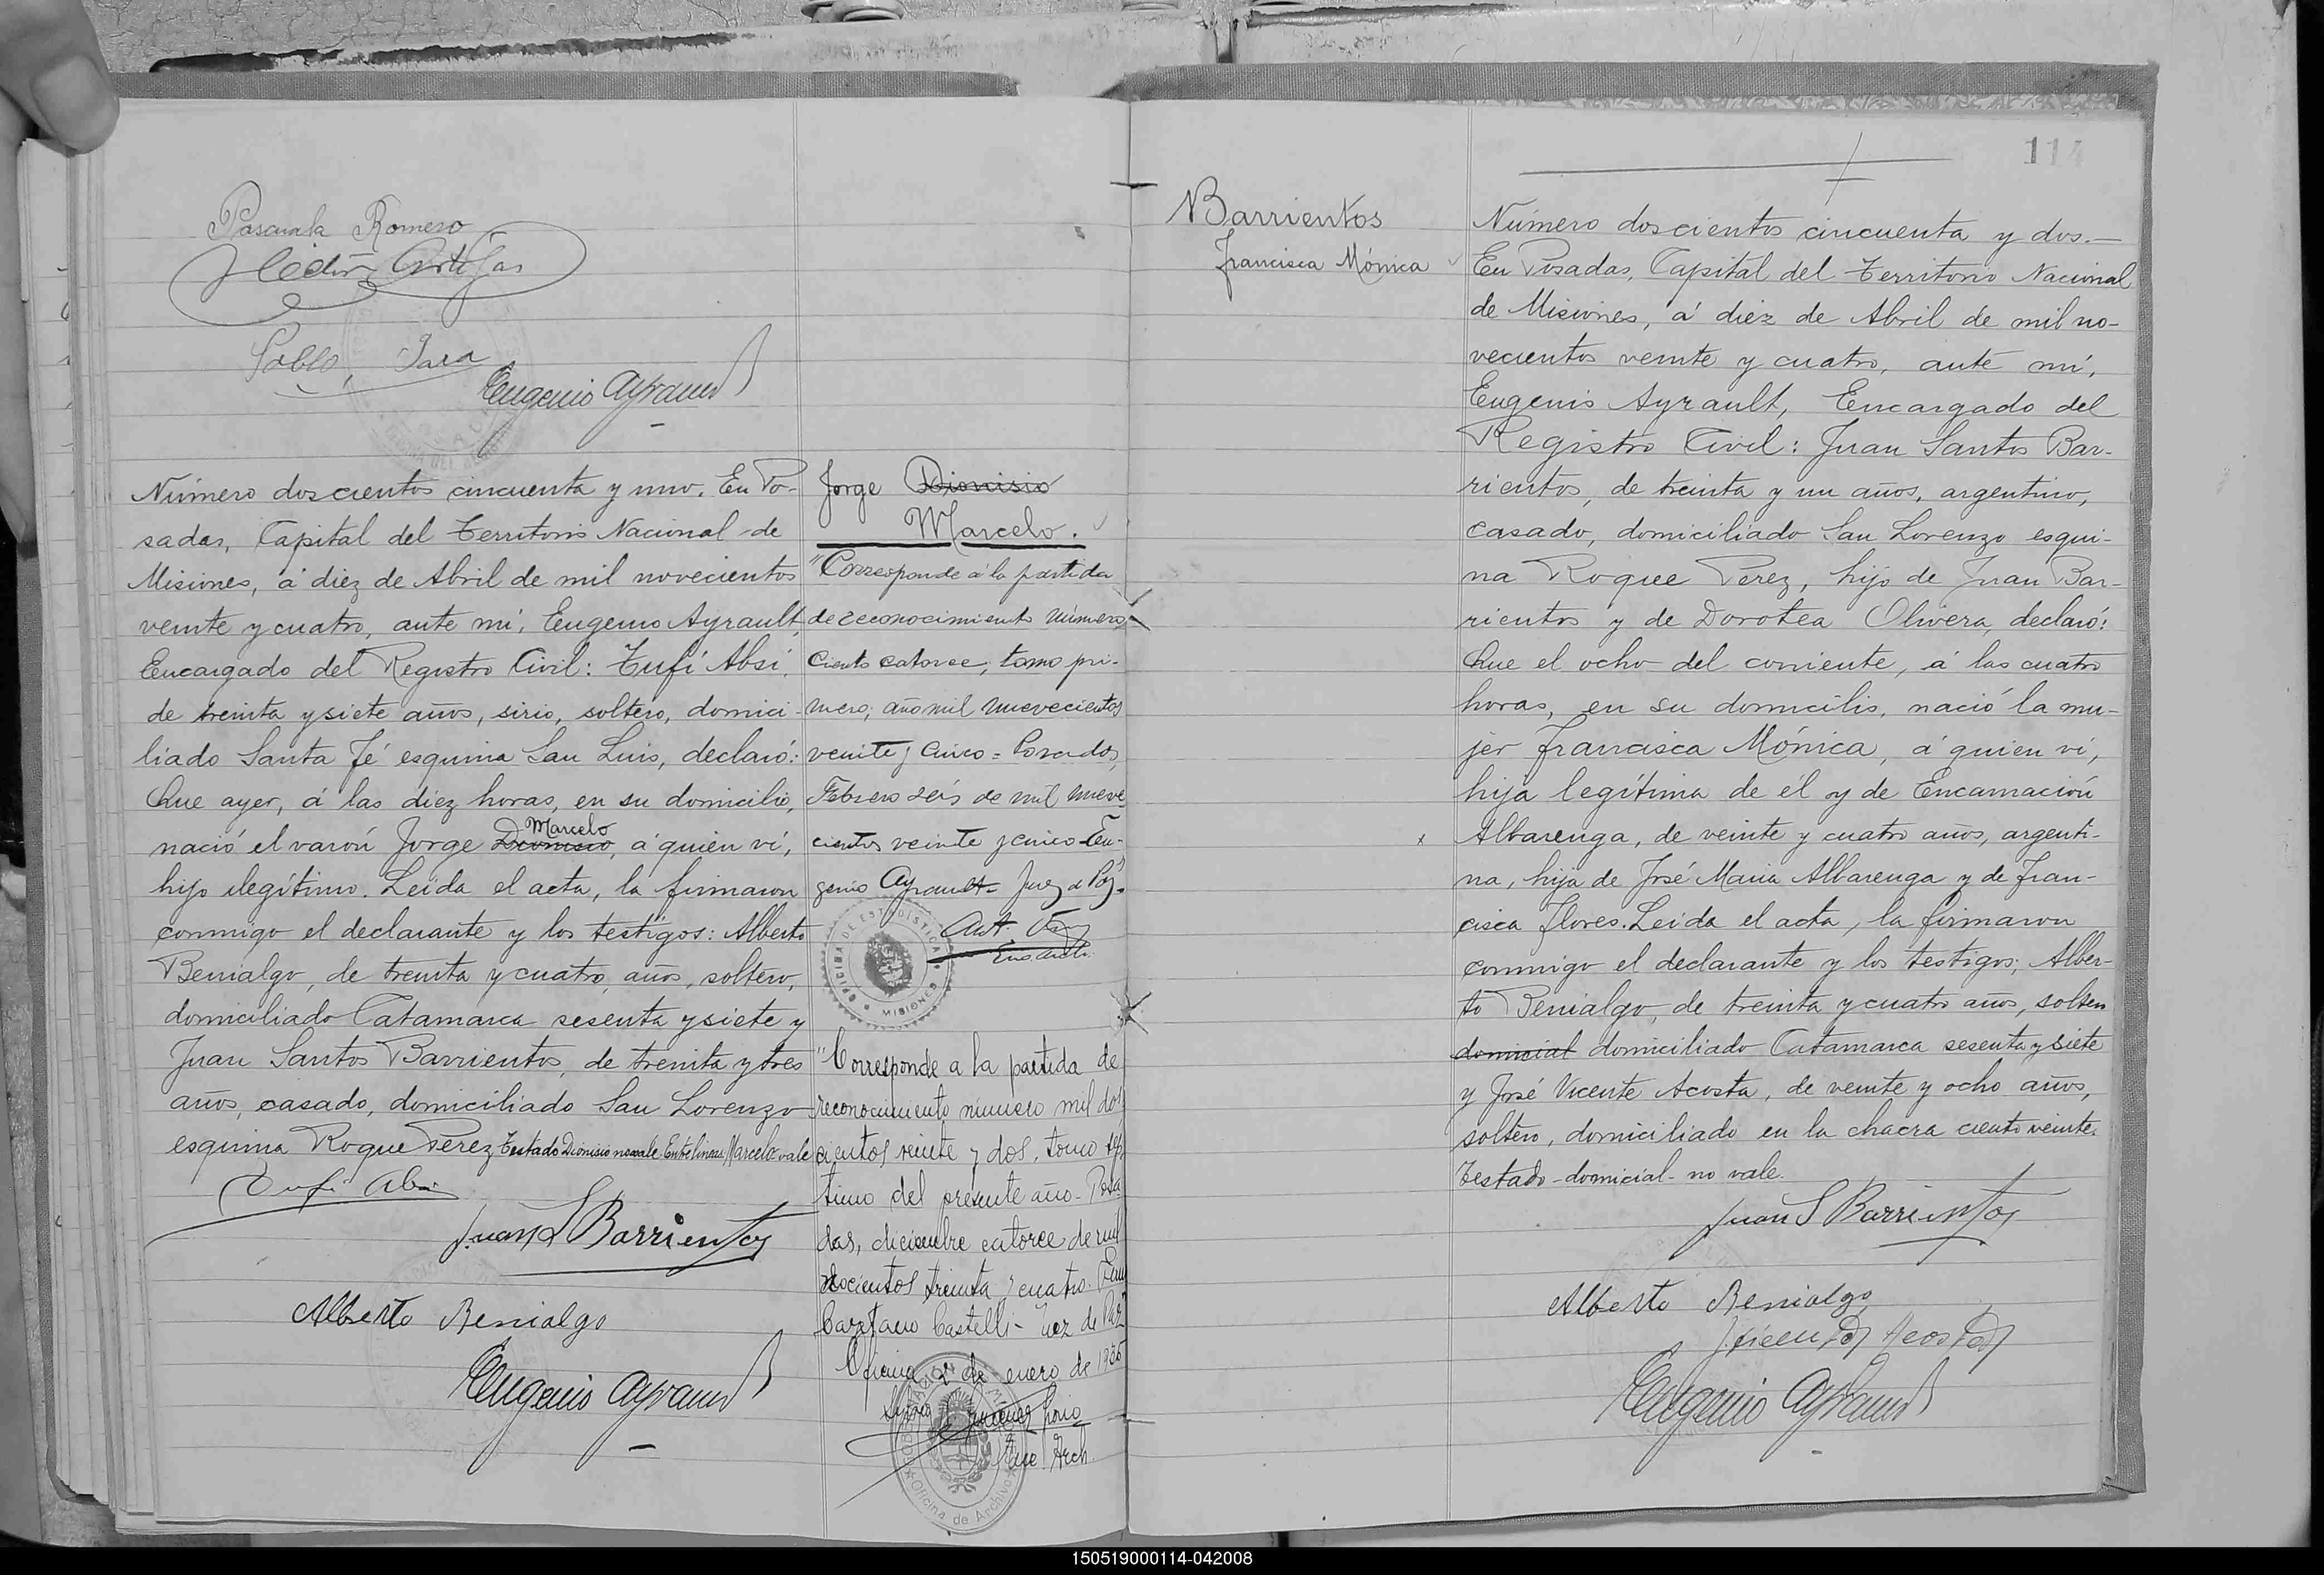 Pascuala Romero
Pablo Jara
Eugenio Ayrault
Número doscientos cincuenta y uno. En Po-
sadas, Capital del Territorio Nacional de
Misiones, á diez de Abril de mil novecientos
veinte y cuatro, ante mí, Eugenio Ayrault,
Encargado del Registro Civil: Tufí Absi,
de treinta y siete años, sirio, soltero, domici-
liado Santa Fé esquina San Luis, declaró:
Que ayer, á las diez horas, en su domicilio,
Marcelo
nació el varón Jorge Dionisio, á quien ví,
hijo ilegítimo. Leida el acta, la firmaron
conmigo el declarante y los testigos: Alberto
Benialgo, de treinta y cuatro años, soltero,
domiciliado Catamarca sesenta y siete y
Juan Santos Barrientos, de treinta y tres
años, casado, domiciliado San Lorenzo
esquina Roque Perez Testado Dionisio no vale. Entre lineas Marcelo vale
Tufi Absi
Juan S Barrientos
Alberto Benialgo
Eugenio Ayrault
Jorge Dionisio
Marcelo.
"Corresponde á la partida
de reconocimiento número
ciento catorce, tomo pri-
mero, año mil nuevecientos
veinte y cinco = Posadas,
Febrero seis de mil nueve
cientos veinte y cinco - Eu-
genio Ayrault = Juez de Paz.
OFICINA DE ESTADISTICA
MISIONES
"Corresponde a la partida de
reconocimiento número mil dos
cientos veinte y dos, tomo sép
timo del presente año - Posa
das, diciembre catorce de mil
treinta y cuatro.
Cayetano Castelli - Juez de Paz"
Oficina, 2 de enero de 1935
Arch.
Oficina de Archivo
114
Barrientos
Francisca Mónica
Número doscientos cincuenta y dos.—
En Posadas, Capital del Territorio Nacional
de Misiones, á diez de Abril de mil no-
vecientos veinte y cuatro, ante mí,
Eugenio Ayrault, Encargado del
Registro Civil: Juan Santos Bar-
rientos, de treinta y un años, argentino,
casado, domiciliado San Lorenzo esqui-
na Roque Perez, hijo de Juan Bar-
rientos y de Dorotea Olivera, declaró:
Que el ocho del corriente, á las cuatro
horas, en su domicilio, nació la mu-
jer Francisca Mónica, á quien ví,
hija legítima de él y de Encarnación
x Albarenga, de veinte y cuatro años, argenti-
na, hija de José Maria Albarenga y de Fran-
cisca Flores. Leida el acta, la firmaron
conmigo el declarante y los testigos; Alber-
to Benialgo, de treinta y cuatro años, soltero
domicial domiciliado Catamarca sesenta y siete
y José Vicente Acosta, de veinte y ocho años,
soltero, domiciliado en la chacra ciento veinte.
Testado - domicial - no vale.
Juan S Barrientos
Alberto Benialgo
J. Vicente Acosta
Eugenio Ayrault
150519000114-042008